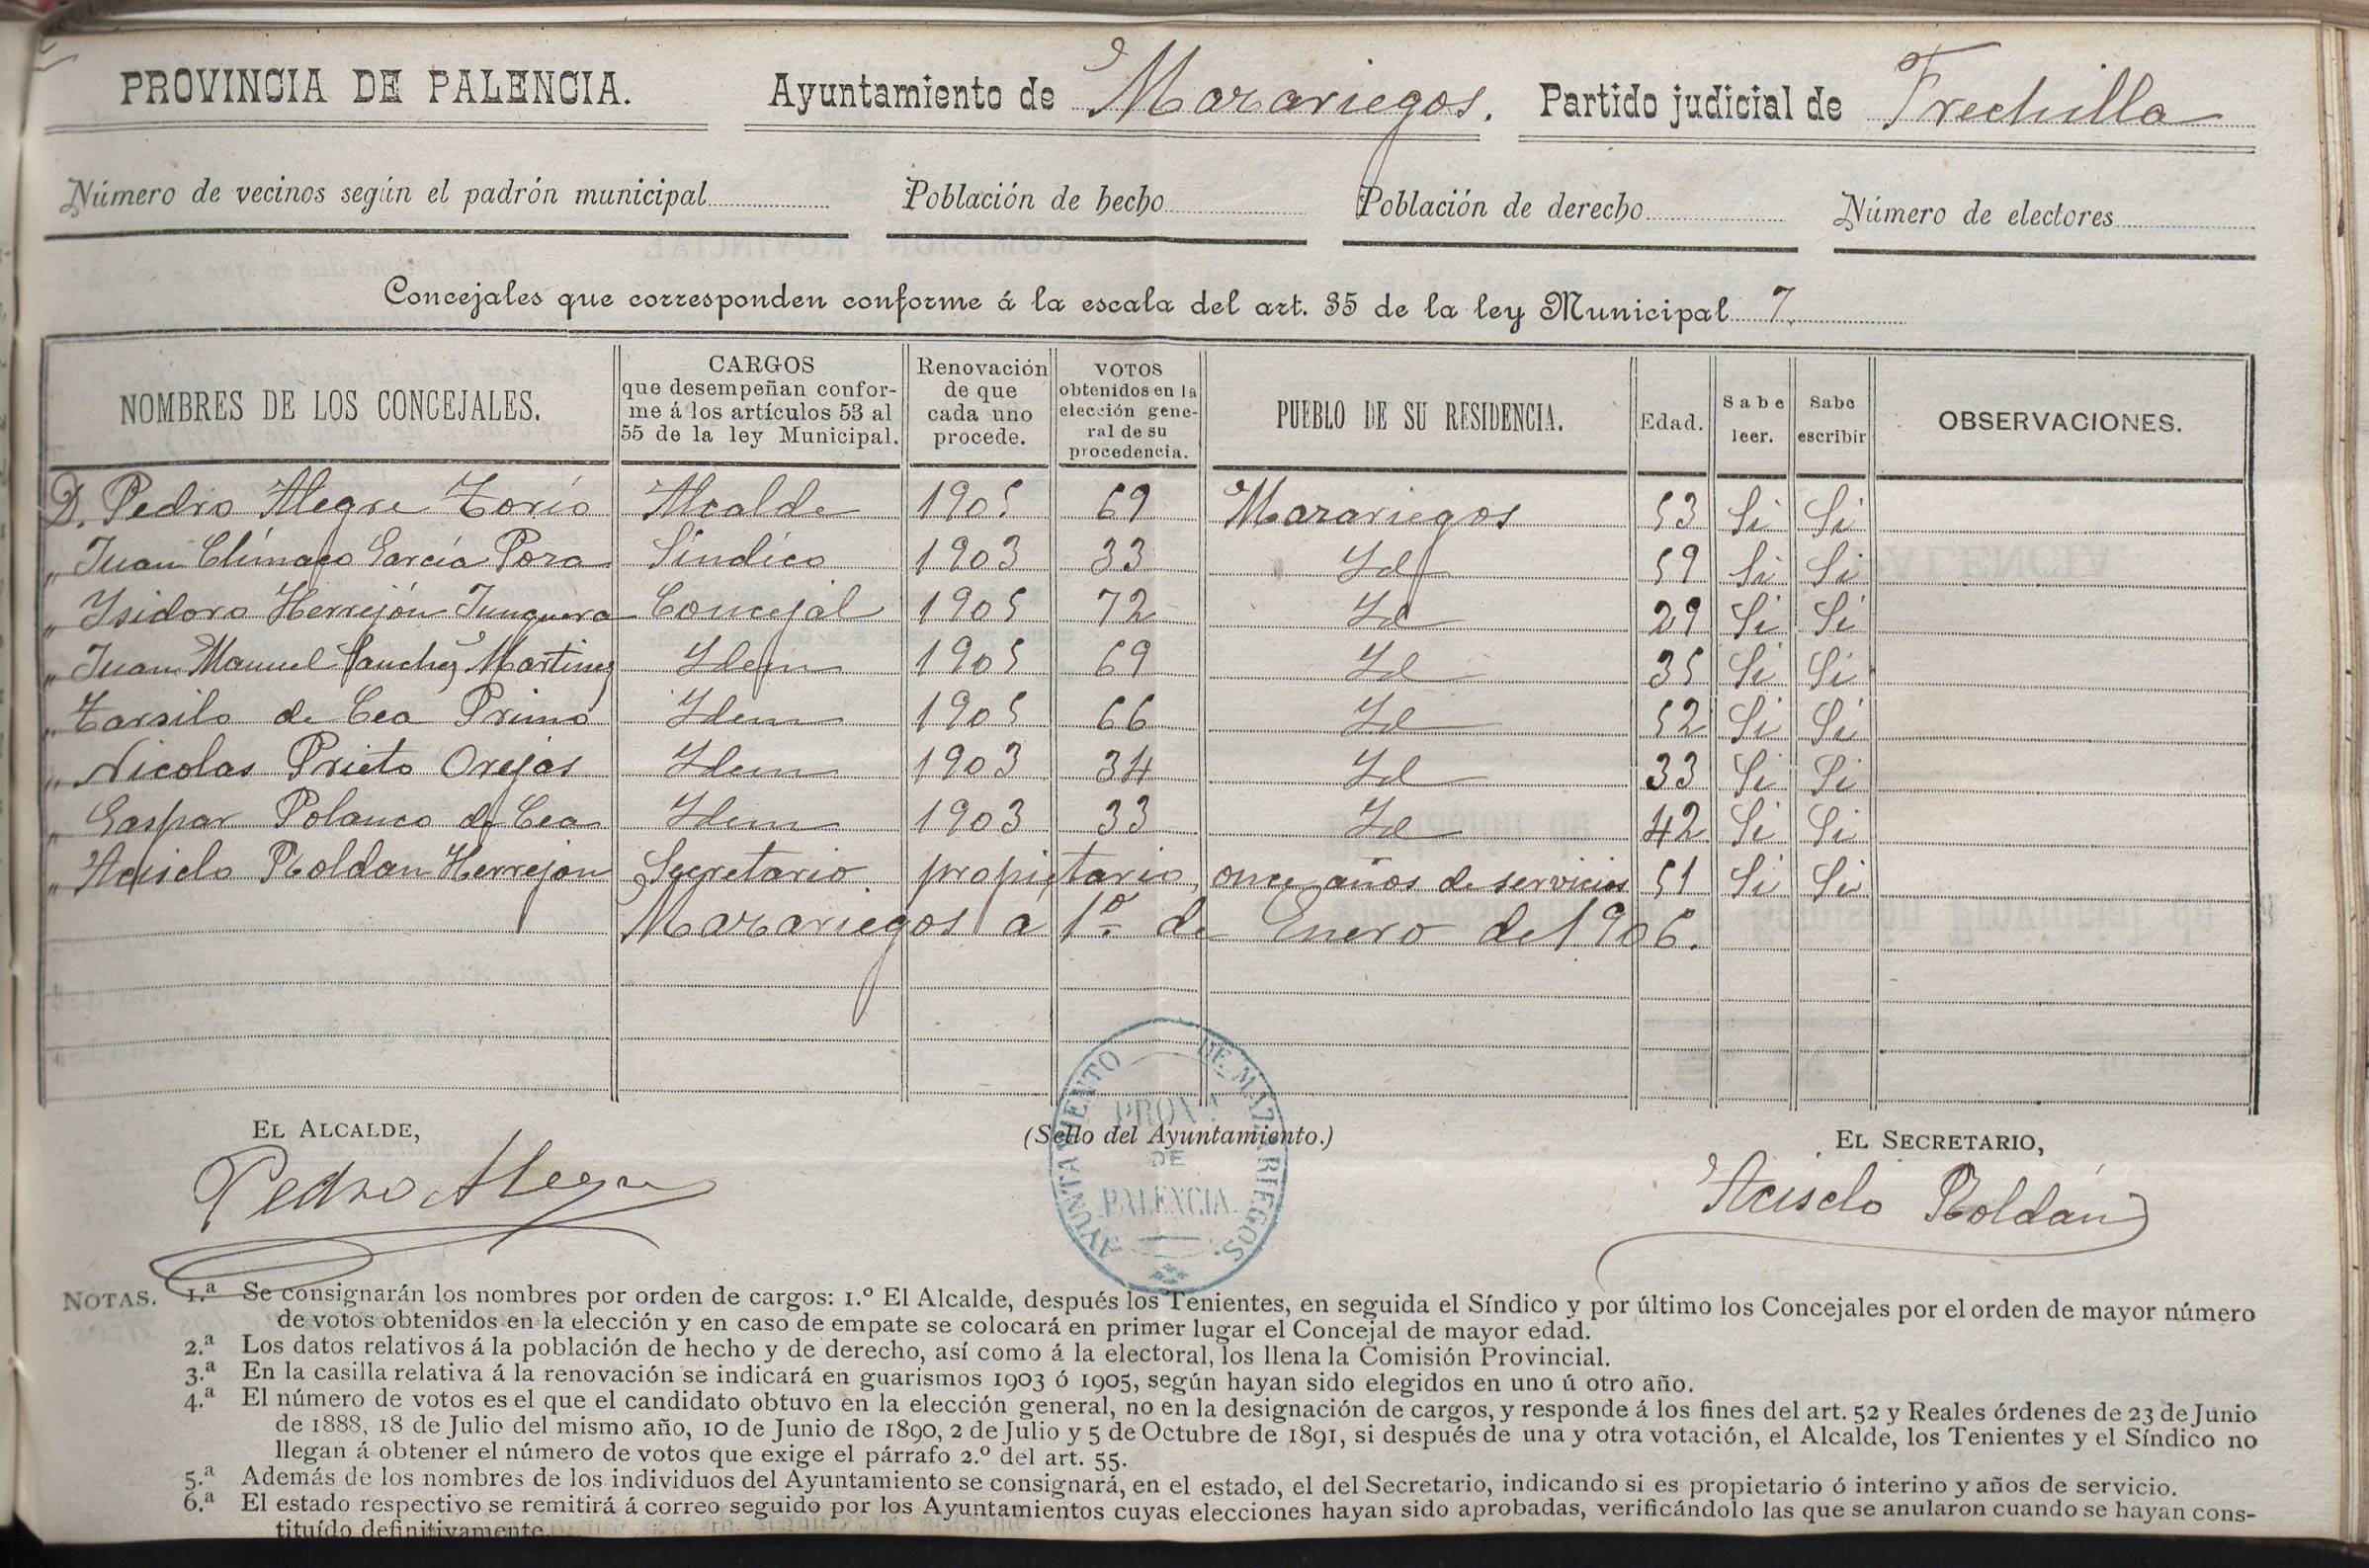 PROVINCIA DE PALENCIA. Ayuntamiento de Mazariegos. Partido judicial de Frechilla
Número de vecinos según el padrón municipal Población de hecho Población de derecho Número de electores
Concejales que corresponden conforme á la escala del art. 35 de la ley Municipal 7.
NOMBRES DE LOS CONCEJALES. CARGOS que desempeñan confor-me á los artículos 53 al 55 de la ley Municipal. Renovación de que cada uno procede. VOTOS obtenidos en la elección gene-ral de su procedencia. PUEBLO DE SU RESIDENCIA. Edad. Sabe leer. Sabe escribir OBSERVACIONES.
D. Pedro Alegre Torío Alcalde 1905 69 Mazariegos 53 Si Si
„ Juan Clímaco García Poza Síndico 1903 33 Id 59 Si Si
„ Isidoro Herrejón Junquera Concejal 1905 72 Id 29 Si Si
„ Juan Manuel Sanchez Martinez Idem 1905 69 Id 35 Si Si
„ Tarsilo de Cea Primo Idem 1905 66 Id 52 Si Si
„ Nicolas Prieto Orejas Idem 1903 34 Id 33 Si Si
„ Gaspar Polanco de Cea Idem 1903 33 Id 42 Si Si
„ Acisclo Roldan Herrejon Secretario propietario, once años de servicios 51 Si Si
Mazariegos a 1º de Enero de 1906.
EL ALCALDE, (Sello del Ayuntamiento.) EL SECRETARIO,
Pedro Alegre Acisclo Roldán
AYUNTAMIENTO DE MAZARIEGOS.
PROV.ª
DE
PALENCIA
NOTAS. 1.ª Se consignarán los nombres por orden de cargos: 1.º El Alcalde, después los Tenientes, en seguida el Síndico y por último los Concejales por el orden de mayor número
de votos obtenidos en la elección y en caso de empate se colocará en primer lugar el Concejal de mayor edad.
2.ª Los datos relativos á la población de hecho y de derecho, así como á la electoral, los llena la Comisión Provincial.
3.ª En la casilla relativa á la renovación se indicará en guarismos 1903 ó 1905, según hayan sido elegidos en uno ú otro año.
4.ª El número de votos es el que el candidato obtuvo en la elección general, no en la designación de cargos, y responde á los fines del art. 52 y Reales órdenes de 23 de Junio
de 1888, 18 de Julio del mismo año, 10 de Junio de 1890, 2 de Julio y 5 de Octubre de 1891, si después de una y otra votación, el Alcalde, los Tenientes y el Síndico no
llegan á obtener el número de votos que exige el párrafo 2.º del art. 55.
5.ª Además de los nombres de los individuos del Ayuntamiento se consignará, en el estado, el del Secretario, indicando si es propietario ó interino y años de servicio.
6.ª El estado respectivo se remitirá á correo seguido por los Ayuntamientos cuyas elecciones hayan sido aprobadas, verificándolo las que se anularon cuando se hayan cons-
tituído definitivamente